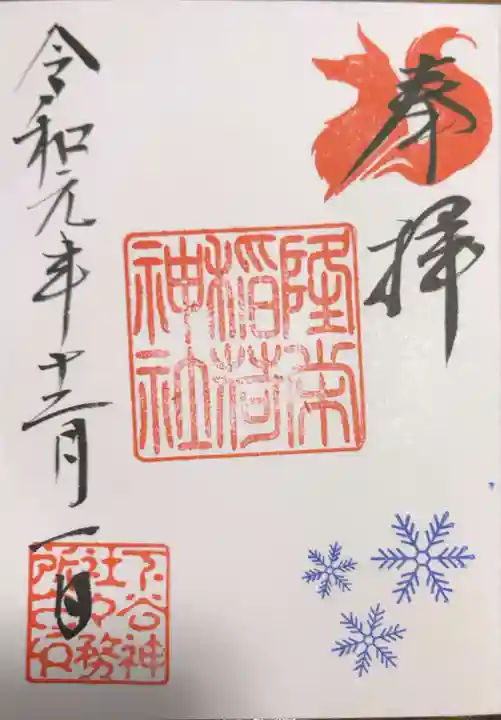 奉拝
隆栄
稲荷
神社
令和元年十二月一日
下谷神
社々務
所之印